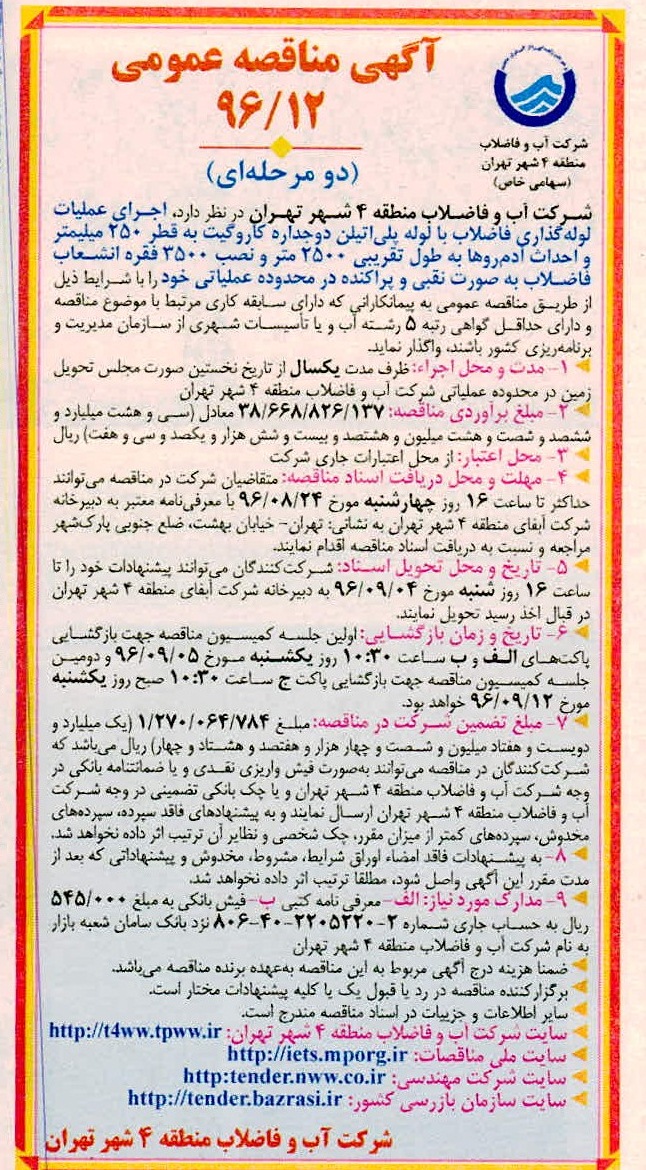 آگهی مناقصه عمومی
۹۶/۱۲
(دو مرحله‌ای)
شرکت آب و فاضلاب
منطقه ۴ شهر تهران
(سهامی خاص)
شرکت آب و فاضلاب منطقه ۴ شهر تهران در نظر دارد، اجرای عملیات
لوله‌گذاری فاضلاب با لوله پلی‌اتیلن دوجداره کاروگیت به قطر ۲۵۰ میلیمتر
و احداث آدم‌روها به طول تقریبی ۲۵۰۰ متر و نصب ۳۵۰۰ فقره انشعاب
فاضلاب به صورت نقبی و پراکنده در محدوده عملیاتی خود را با شرایط ذیل
از طریق مناقصه عمومی به پیمانکارانی که دارای سابقه کاری مرتبط با موضوع مناقصه
و دارای حداقل گواهی رتبه ۵ رشته آب و یا تأسیسات شهری از سازمان مدیریت و
برنامه‌ریزی کشور باشند، واگذار نماید.
۱- مدت و محل اجراء: ظرف مدت یکسال از تاریخ نخستین صورت مجلس تحویل
زمین در محدوده عملیاتی شرکت آب و فاضلاب منطقه ۴ شهر تهران
۲- مبلغ برآوردی مناقصه: ۳۸/۶۶۸/۸۲۶/۱۳۷ معادل (سی و هشت میلیارد و
ششصد و شصت و هشت میلیون و هشتصد و بیست و شش هزار و یکصد و سی و هفت) ریال
۳- محل اعتبار: از محل اعتبارات جاری شرکت
۴- مهلت و محل دریافت اسناد مناقصه: متقاضیان شرکت در مناقصه می‌توانند
حداکثر تا ساعت ۱۶ روز چهارشنبه مورخ ۹۶/۰۸/۲۴ با معرفی‌نامه معتبر به دبیرخانه
شرکت آبفای منطقه ۴ شهر تهران به نشانی: تهران- خیابان بهشت، ضلع جنوبی پارک‌شهر
مراجعه و نسبت به دریافت اسناد مناقصه اقدام نمایند.
۵- تاریخ و محل تحویل اسناد: شرکت‌کنندگان می‌توانند پیشنهادات خود را تا
ساعت ۱۶ روز شنبه مورخ ۹۶/۰۹/۰۴ به دبیرخانه شرکت آبفای منطقه ۴ شهر تهران
در قبال اخذ رسید تحویل نمایند.
۶- تاریخ و زمان بازگشایی: اولین جلسه کمیسیون مناقصه جهت بازگشایی
پاکت‌های الف و ب ساعت ۱۰:۳۰ روز یکشنبه مورخ ۹۶/۰۹/۰۵ و دومین
جلسه کمیسیون مناقصه جهت بازگشایی پاکت ج ساعت ۱۰:۳۰ صبح روز یکشنبه
مورخ ۹۶/۰۹/۱۲ خواهد بود.
۷- مبلغ تضمین شرکت در مناقصه: مبلغ ۱/۲۷۰/۰۶۴/۷۸۴ (یک میلیارد و
دویست و هفتاد میلیون و شصت و چهار هزار و هفتصد و هشتاد و چهار) ریال می‌باشد که
شرکت‌کنندگان در مناقصه می‌توانند به‌صورت فیش واریزی نقدی و یا ضمانتنامه بانکی در
وجه شرکت آب و فاضلاب منطقه ۴ شهر تهران و یا چک بانکی تضمینی در وجه شرکت
آب و فاضلاب منطقه ۴ شهر تهران ارسال نمایند و به پیشنهادهای فاقد سپرده، سپرده‌های
مخدوش، سپرده‌های کمتر از میزان مقرر، چک شخصی و نظایر آن ترتیب اثر داده نخواهد شد.
۸- به پیشنهادات فاقد امضاء اوراق شرایط، مشروط، مخدوش و پیشنهاداتی که بعد از
مدت مقرر این آگهی واصل شود، مطلقا ترتیب اثر داده نخواهد شد.
۹- مدارک مورد نیاز: الف- معرفی نامه کتبی ب- فیش بانکی به مبلغ ۵۴۵/۰۰۰
ریال به حساب جاری شماره ۲-۲۲۰۵۲۲۰-۴۰-۸۰۶ نزد بانک سامان شعبه بازار
به نام شرکت آب و فاضلاب منطقه ۴ شهر تهران
ضمنا هزینه درج آگهی مربوط به این مناقصه به‌عهده برنده مناقصه می‌باشد.
برگزارکننده مناقصه در رد یا قبول یک یا کلیه پیشنهادات مختار است.
سایر اطلاعات و جزییات در اسناد مناقصه مندرج است.
سایت شرکت آب و فاضلاب منطقه ۴ شهر تهران: http://t4ww.tpww.ir
سایت ملی مناقصات: http://iets.mporg.ir
سایت شرکت مهندسی: http:tender.nww.co.ir
سایت سازمان بازرسی کشور: http://tender.bazrasi.ir
شرکت آب و فاضلاب منطقه ۴ شهر تهران